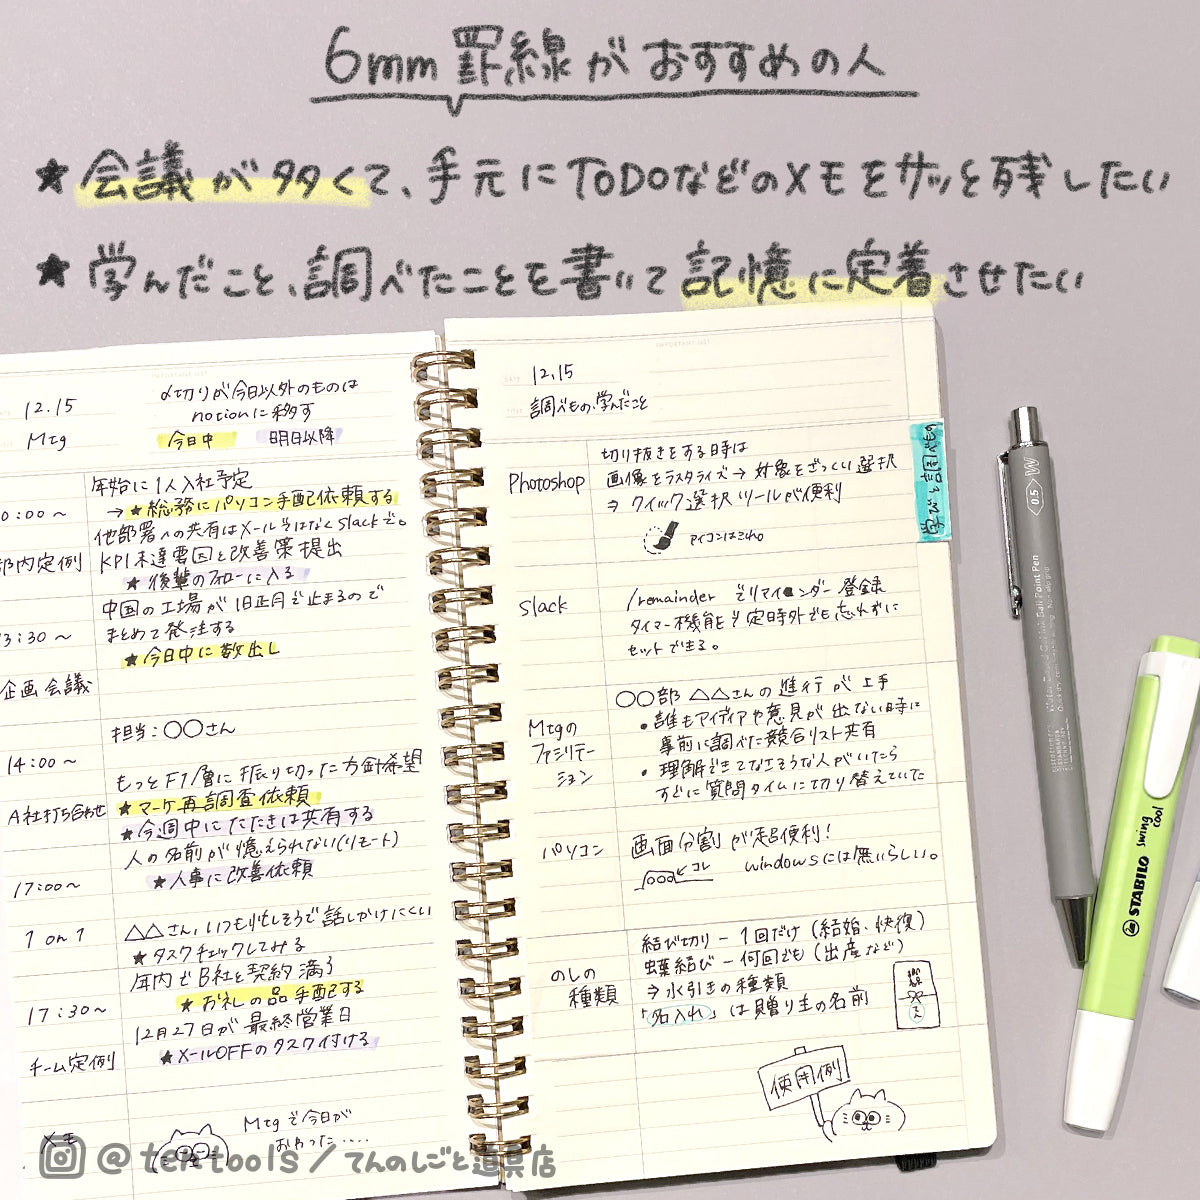 6mm 罫線が おすすめの人
★ 会議が多くて、手元にToDoなどのメモをサッと残したい
★ 学んだこと、調べたことを書いて記憶に定着させたい
12.15
〆切りが今日以外のものは
notionに移す
Mtg
今日中 明日以降
年始に1人入社予定
→ ★総務にパソコン手配依頼する
0:00～
他部署への共有はメールではなくslackで。
部内定例
KPI未達要因と改善策提出
★後輩のフォローに入る
中国の工場が旧正月で止まるので
3:30～
まとめて発注する
★今日中に数出し
企画会議
担当：〇〇さん
14:00～
もっとF1層に振り切った方針希望
A社打ち合わせ
★マーケ再調査依頼
★今週中にたたきは共有する
人の名前が憶えられない(リモート)
17:00～
★人事に改善依頼
1 on 1
△△さん、いつも忙しそうで話しかけにくい
★タスクチェックしてみる
年内でB社と契約満了
★お礼の品手配する
17:30～
12月27日が最終営業日
チーム定例
★メールOFFのタスク付ける
メモ
Mtgで今日が
おわった....
IMPORTANT LIST
DATE
12.15
TITLE
調べもの、学んだこと
学びと調べもの
Photoshop
切り抜きをする時は
画像をラスタライズ→対象をざっくり選択
⇒クイック選択ツールが便利
アイコンはこれ
slack
/remainder でリマインダー登録
タイマー機能で定時外でも忘れずに
セットできる。
Mtgの
ファシリテー
ション
〇〇部 △△さんの進行が上手
・誰もアイディアや意見が出ない時に
事前に調べた競合リスト共有
・理解できてなさそうな人がいたら
すぐに質問タイムに切り替えていた
パソコン
画面分割が超便利！
コレ
windowsには無いらしい。
のしの
種類
結び切り－1回だけ(結婚、快復)
蝶結び－何回でも(出産など)
⇒水引きの種類
「名入れ」は贈り主の名前
使用例
0.5
Water-Based Gel Ink Ball Point Pen
STABILO swing cool
@tentools/てんのしごと道具店